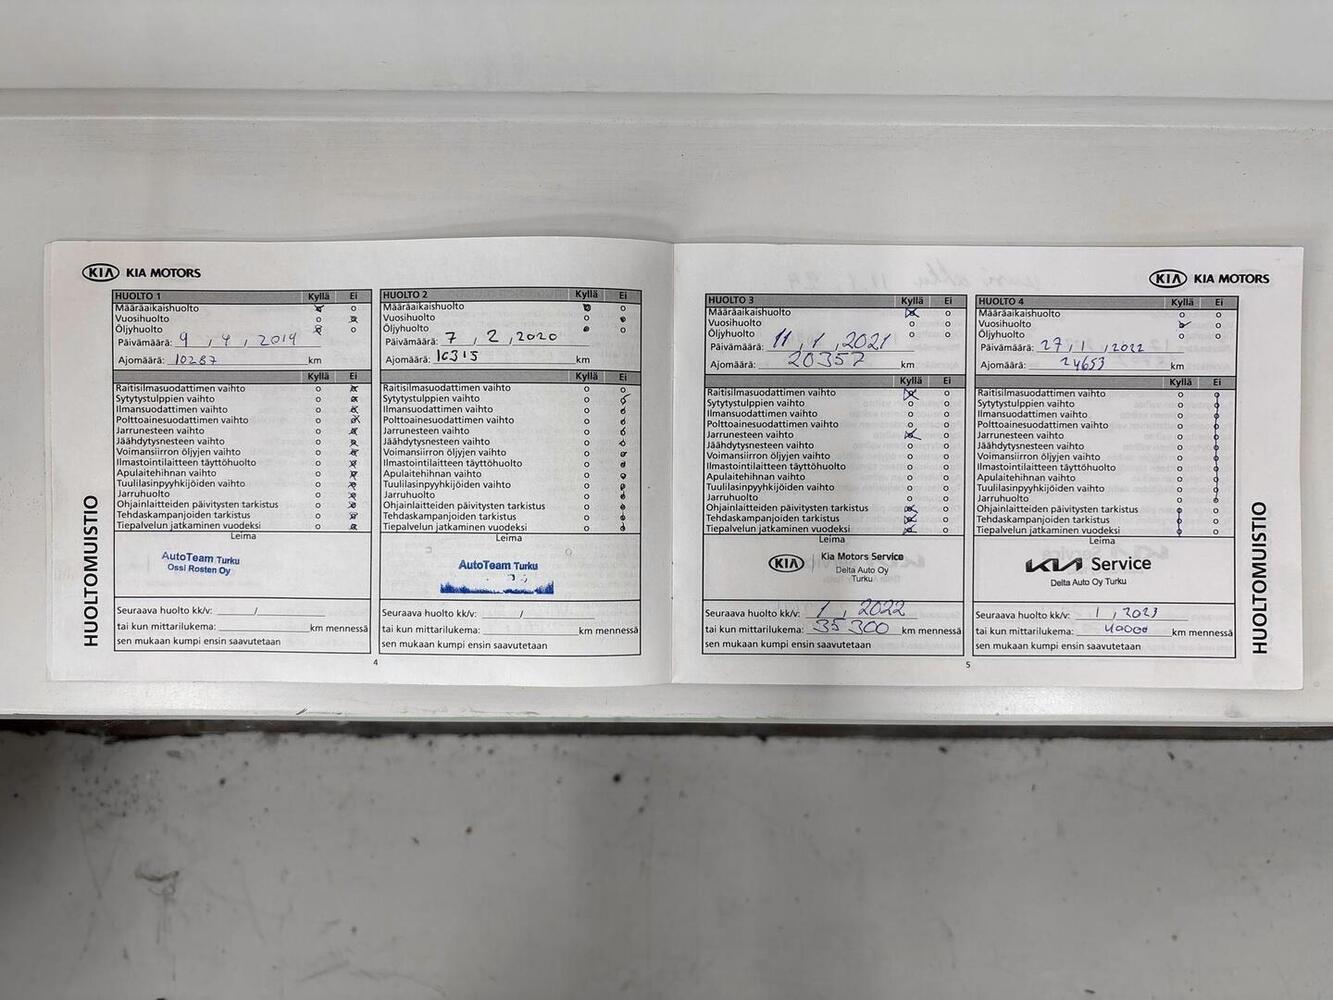 KIA KIA MOTORS
HUOLTOMUISTIO
HUOLTO 1 Kyllä Ei
Määräaikaishuolto
Vuosihuolto
Öljyhuolto
Päivämäärä: 9 , 4 , 2019
Ajomäärä: 10287 km
Kyllä Ei
Raitisilmasuodattimen vaihto
Sytytystulppien vaihto
Ilmansuodattimen vaihto
Polttoainesuodattimen vaihto
Jarrunesteen vaihto
Jäähdytysnesteen vaihto
Voimansiirron öljyjen vaihto
Ilmastointilaitteen täyttöhuolto
Apulaitehihnan vaihto
Tuulilasinpyyhkijöiden vaihto
Jarruhuolto
Ohjainlaitteiden päivitysten tarkistus
Tehdaskampanjoiden tarkistus
Tiepalvelun jatkaminen vuodeksi
Leima
AutoTeam Turku
Ossi Rosten Oy
Seuraava huolto kk/v: /
tai kun mittarilukema: km mennessä
sen mukaan kumpi ensin saavutetaan
HUOLTO 2 Kyllä Ei
Määräaikaishuolto
Vuosihuolto
Öljyhuolto
Päivämäärä: 7 , 2 , 2020
Ajomäärä: 16315 km
Kyllä Ei
Raitisilmasuodattimen vaihto
Sytytystulppien vaihto
Ilmansuodattimen vaihto
Polttoainesuodattimen vaihto
Jarrunesteen vaihto
Jäähdytysnesteen vaihto
Voimansiirron öljyjen vaihto
Ilmastointilaitteen täyttöhuolto
Apulaitehihnan vaihto
Tuulilasinpyyhkijöiden vaihto
Jarruhuolto
Ohjainlaitteiden päivitysten tarkistus
Tehdaskampanjoiden tarkistus
Tiepalvelun jatkaminen vuodeksi
Leima
AutoTeam Turku
Seuraava huolto kk/v: /
tai kun mittarilukema: km mennessä
sen mukaan kumpi ensin saavutetaan
4
KIA KIA MOTORS
HUOLTO 3 Kyllä Ei
Määräaikaishuolto
Vuosihuolto
Öljyhuolto
Päivämäärä: 11 , 1 , 2021
Ajomäärä: 20357 km
Kyllä Ei
Raitisilmasuodattimen vaihto
Sytytystulppien vaihto
Ilmansuodattimen vaihto
Polttoainesuodattimen vaihto
Jarrunesteen vaihto
Jäähdytysnesteen vaihto
Voimansiirron öljyjen vaihto
Ilmastointilaitteen täyttöhuolto
Apulaitehihnan vaihto
Tuulilasinpyyhkijöiden vaihto
Jarruhuolto
Ohjainlaitteiden päivitysten tarkistus
Tehdaskampanjoiden tarkistus
Tiepalvelun jatkaminen vuodeksi
Leima
KIA Kia Motors Service
Delta Auto Oy
Turku
Seuraava huolto kk/v: 1 , 2022
tai kun mittarilukema: 35 300 km mennessä
sen mukaan kumpi ensin saavutetaan
HUOLTO 4 Kyllä Ei
Määräaikaishuolto
Vuosihuolto
Öljyhuolto
Päivämäärä: 27 , 1 , 2022
Ajomäärä: 24653 km
Kyllä Ei
Raitisilmasuodattimen vaihto
Sytytystulppien vaihto
Ilmansuodattimen vaihto
Polttoainesuodattimen vaihto
Jarrunesteen vaihto
Jäähdytysnesteen vaihto
Voimansiirron öljyjen vaihto
Ilmastointilaitteen täyttöhuolto
Apulaitehihnan vaihto
Tuulilasinpyyhkijöiden vaihto
Jarruhuolto
Ohjainlaitteiden päivitysten tarkistus
Tehdaskampanjoiden tarkistus
Tiepalvelun jatkaminen vuodeksi
Leima
KIA Service
Delta Auto Oy Turku
Seuraava huolto kk/v: 1 , 2023
tai kun mittarilukema: 40000 km mennessä
sen mukaan kumpi ensin saavutetaan
5
HUOLTOMUISTIO